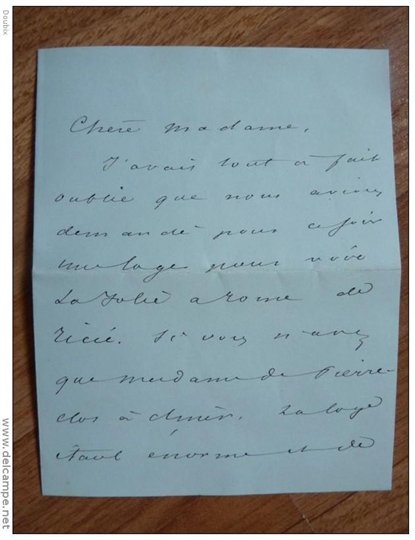 Chère Madame,
J'avais tout à fait
oublié que nous avions
demandé pour ce soir
une loge pour voir
La Folie à Rome de
Ricci. Si vous n'avez
que madame de Pierre-
clos à dîner. La loge
étant enorme et de
www.delcampe.net
Doubix